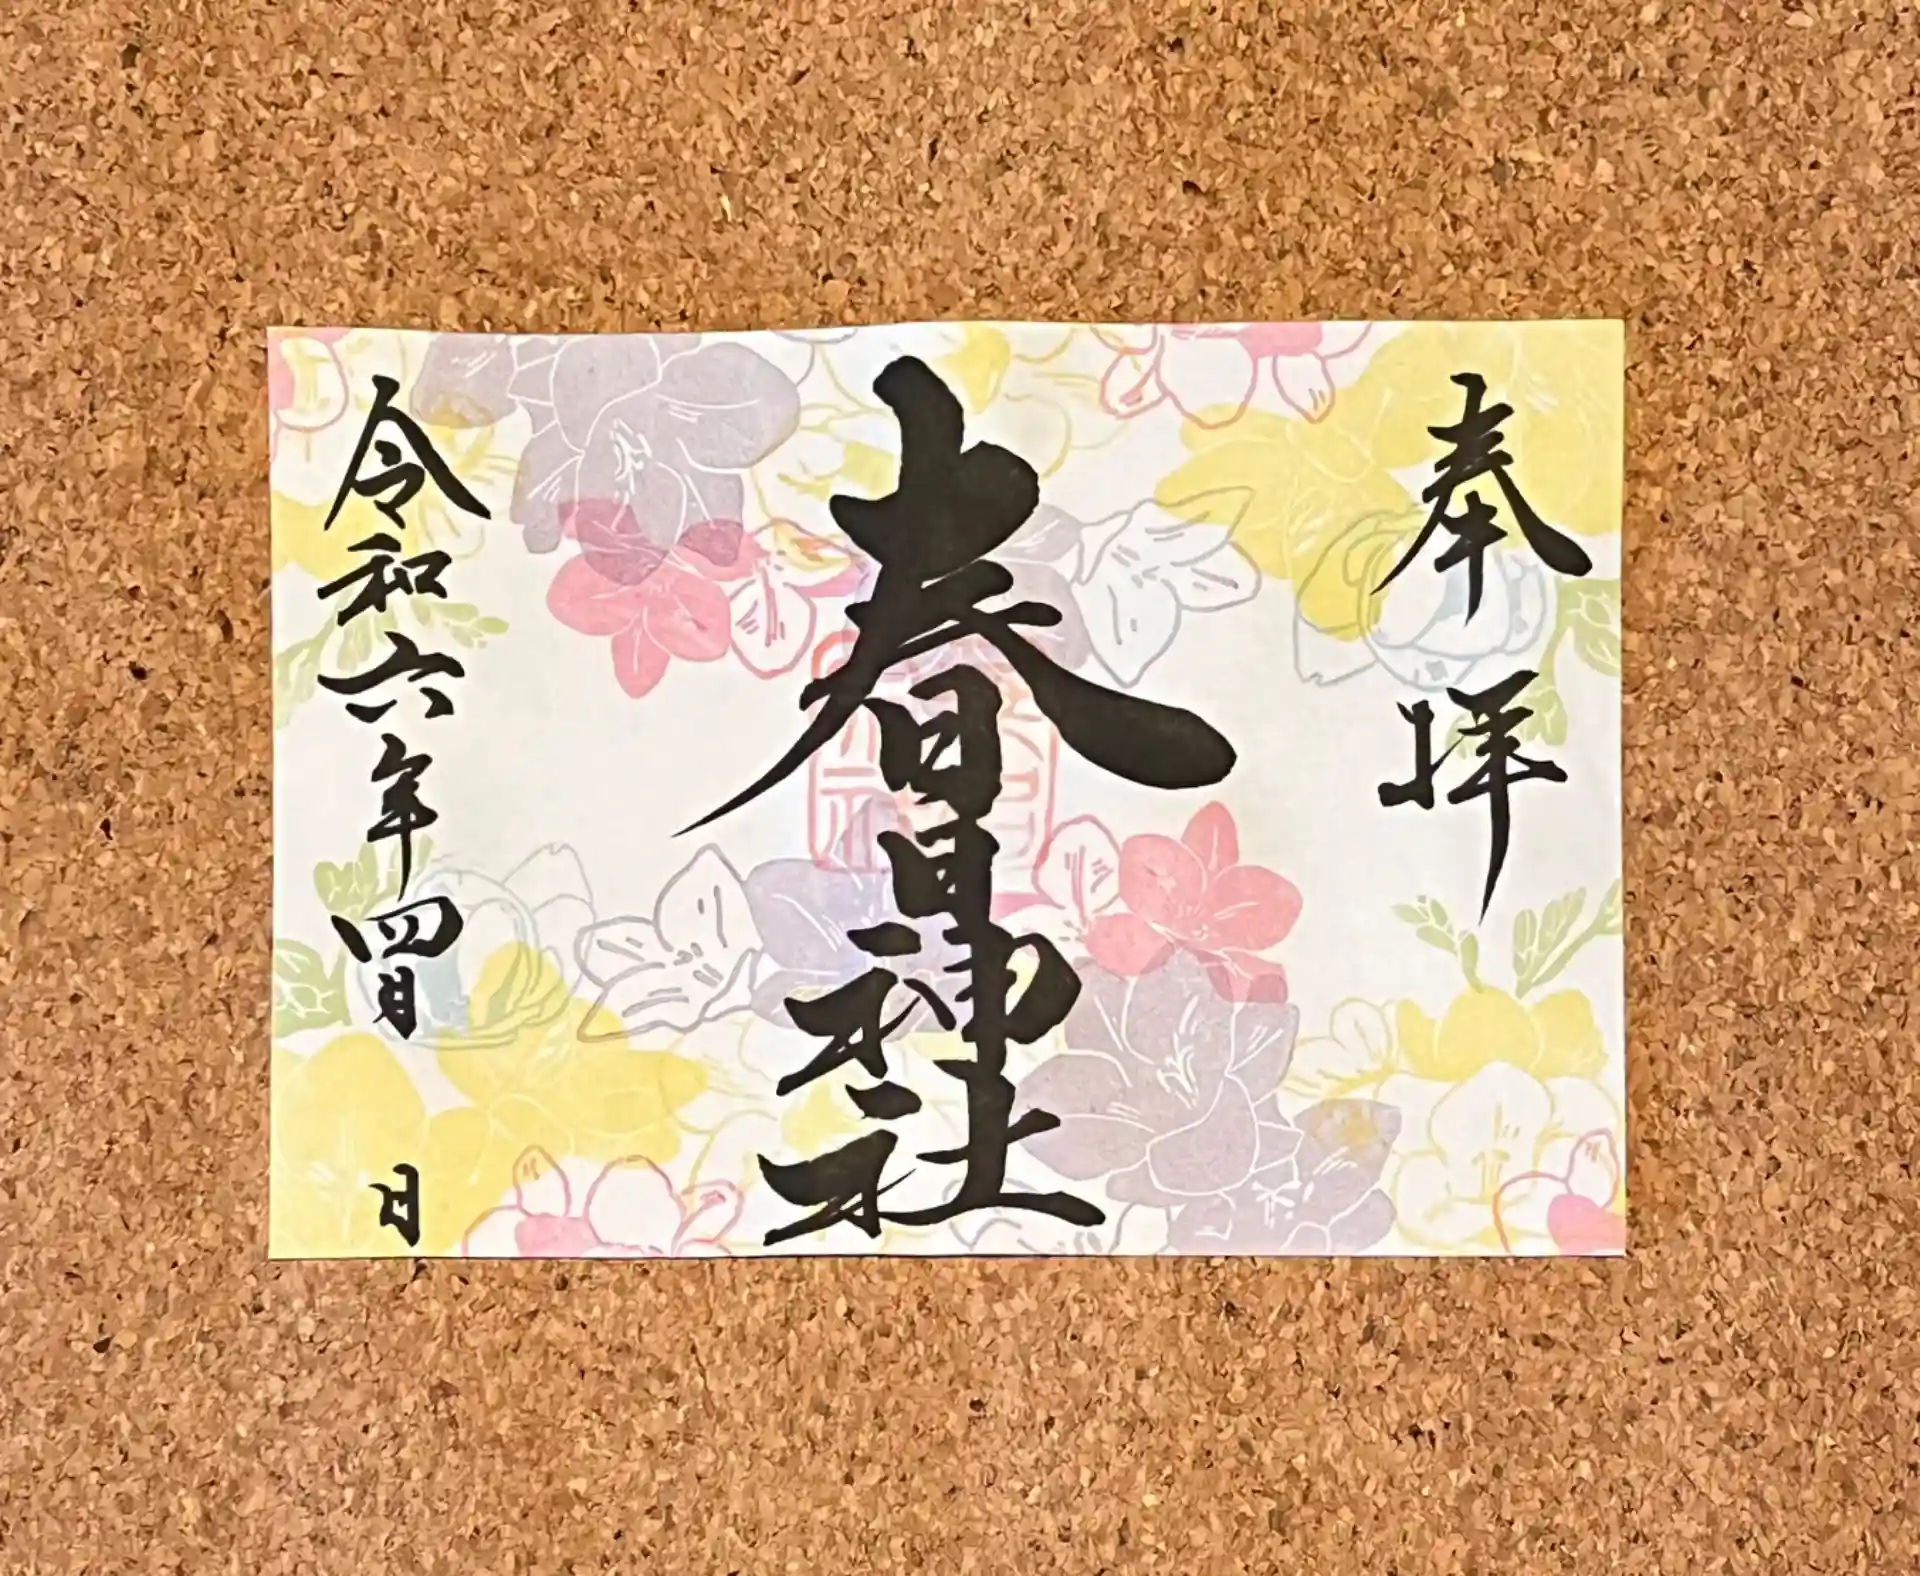 奉拝
春日神社
令和六年四月 日